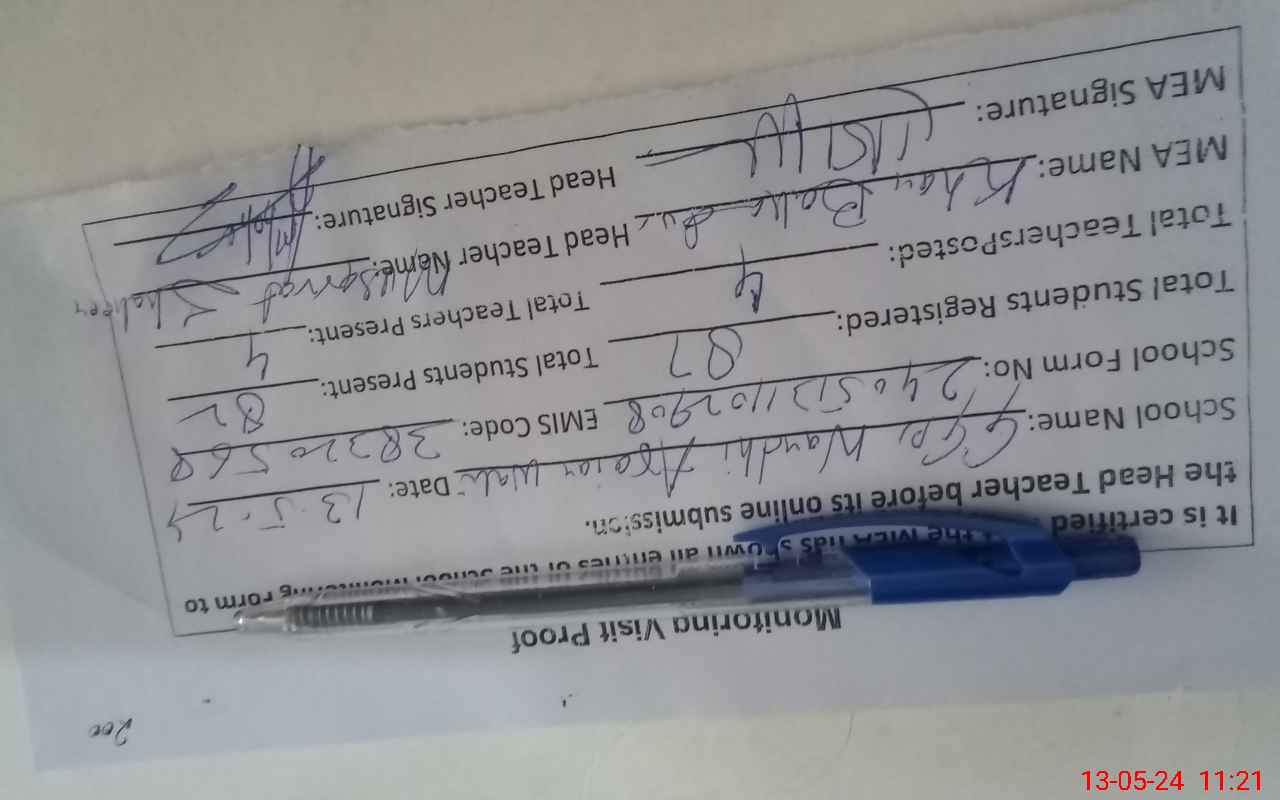 Monitoring Visit Proof
It is certified the MEA has shown all entries of the School Monitoring Form to
the Head Teacher before its online submission.
School Name: GGPS Date: 13.5.24
School Form No: 240513102908 EMIS Code: 38320568
Total Students Registered: 87 Total Students Present: 82
Total TeachersPosted: 4 Total Teachers Present: 4
MEA Name: Khan Head Teacher Name: Musarrat Shaheen
MEA Signature: Head Teacher Signature:
13-05-24 11:21